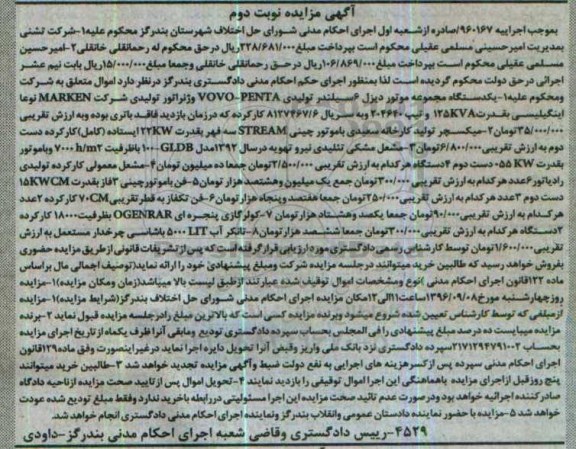 آگهی مزایده نوبت دوم
بموجب اجراییه ۹۶۰۱۶۷/صادره ازشعبه اول اجرای احکام مدنی شورای حل اختلاف شهرستان بندرگز محکوم علیه۱-شرکت تشنی
بمدیریت امیرحسینی مسلمی عقیلی محکوم است بپرداخت مبلغ۲۲۸/۶۸۱/۰۰۰ریال در حق محکوم له رحمانقلی خانقلی۲-امیرحسین
مسلمی عقیلی محکوم است بپرداخت مبلغ۱۰۶/۸۶۹/۰۰۰ریال درحق رحمانقلی خانقلی وجمعا مبلغ۱۵/۰۰۰/۰۰۰ریال بابت نیم عشر
اجرائی درحق دولت محکوم گردیده است لذا بمنظور اجرای حکم اجرای احکام مدنی دادگستری بندرگز درنظر دارد اموال متعلق به شرکت
ومحکوم علیه۱-یکدستگاه مجموعه موتور دیزل ۶ سیلندر تولیدی VOVO-PENTA وژنراتور تولیدی شرکت MARKEN نوعا
انگلیسی بقدرت۱۲۵KVA و تیپ ۲۰۴۶۴۰ به سریال ۸۱۲۷۴۶۷/۶ کارکرده که درزمان بازدید فاقد باتری بوده وبه ارزش تقریبی
۳۵/۰۰۰/۰۰۰تومان۲-میکسچر تولید کارخانه سعیدی باموتور چینی STREAM سه فهر بقدرت ۲۲KW ایستاده (کامل)کارکرده دست
دوم به ارزش تقریبی۶/۸۰۰/۰۰۰تومان۳-مشعل مشکی تنلیدی نیرو تهویه درسال ۱۳۹۲مدل GLDB-۱۰۰ باظرفیت ۷۰۰۰ h/m۲ وباموتور
بقدرت ۵۵ KW-دست دوم ۴دستگاه هرکدام به ارزش تقریبی ۲/۵۰۰/۰۰۰تومان جمعا ده میلیون تومان۴-مشعل معمولی کارکرده تولیدی
رادیاتور۶عدد هرکدام به ارزش تقریبی۳۰۰/۰۰۰تومان جمع یک میلیون وهشتصد هزار تومان۵-فن باموتورچینی ۳فاز بقدرت ۱۵KWCM
دست دوم ۳عدد هرکدام به ارزش تقریبی۲۵۰/۰۰۰تومان جمعا هفتصد وپنجاه هزار تومان۶-فن تکفاز به قطر تقریبی ۷۰CM کارکرده ۲عدد
هرکدام به ارزش تقریبی۹۰/۰۰۰تومان جمعا یکصد وهشتاد هزار تومان ۷-کولرگازی پنجره ای OGENRAR بظرفیت ۱۸۰۰۰ کارکرده
۲دستگاه هرکدام به ارزش تقریبی ۳۰۰/۰۰۰تومان جمعا ششصد هزار تومان۸-تانکر آب ۵۰۰۰ LIT باشاسی چرخدار مستعمل به ارزش
تقریبی۱/۶۰۰/۰۰۰تومان توسط کارشناس رسمی دادگستری مورد ارزیابی قرار گرفته است که پس از تشریفات قانونی ازطریق مزایده حضوری
بفروش خواهد رسید که طالبین خرید میتوانند درجلسه مزایده شرکت ومبلغ پیشنهادی خود را ارائه نماید(توصیف اجمالی مال براساس
ماده ۱۲۲قانون اجرای احکام مدنی )نوع ومشخصات اموال توقیف شده عبارتند ازطبق لیست بالا میباشد(زمان ومکان مزایده)۱-مزایده
روز چهارشنبه مورخ۱۳۹۶/۰۹/۰۸ساعت۱۱الی۱۲مکان مزایده اجرای احکام مدنی شورای حل اختلاف بندرگز(شرایط مزایده)۱-مزایده
ازمبلغی که توسط کارشناس تعیین شده شروع میشود وبرنده مزایده کسی است که بالاترین مبلغ رادرجلسه مزایده قبول نماید ۲-برنده
مزایده میبایست ده درصد مبلغ پیشنهادی را فی المجلس بحساب سپرده دادگستری تودیع ومابقی آنرا ظرف یکماه از تاریخ اجرای مزایده
بحساب ۲۱۷۱۲۹۴۷۹۱۰۰۲سپرده دادگستری نزد بانک ملی واریز وفیش آنرا تحویل دایره اجرا نماید درغیراینصورت وفق ماده۱۲۹قانون
اجرای احکام مدنی سپرده پس ازکسرهزینه های اجرایی به نفع دولت ضبط وآگهی مزایده تجدید خواهد شد ۳-طالبین خرید میتوانند
پنج روزقبل ازاجرای مزایده باهماهنگی این اجرا اموال توقیفی را بازدید نمایند ۴-تحویل اموال پس ازتایید صحت مزایده ازناحیه دادگاه
صادر کننده اجرائیه خواهد بود ودرصورت عدم تائید صحت مزایده این اجرا مسئولیتی دررابطه باخرید ندارد وفقط مبلغ تودیع شده عودت
خواهد شد ۵-مزایده با حضور نماینده دادستان عمومی وانقلاب بندرگز ونماینده اجرای احکام مدنی دادگستری انجام خواهد شد.
۴۵۲۹-رییس دادگستری وقاضی شعبه اجرای احکام مدنی بندرگز-داودی